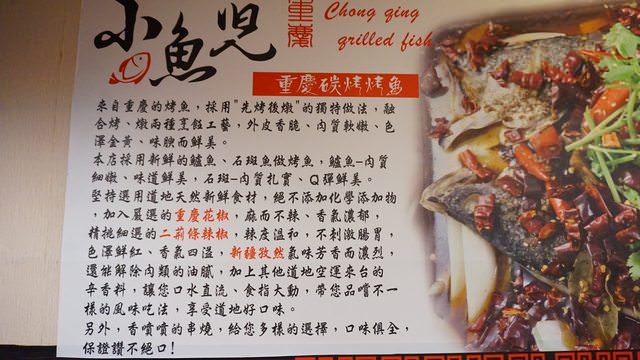 小魚兒
重慶
Chong qing
grilled fish
重慶碳烤烤魚
來自重慶的烤魚，採用"先烤後燉"的獨特做法，融
合烤、燉兩種烹飪工藝，外皮香脆、肉質軟嫩、色
澤金黃、味腴而鮮美。
本店採用新鮮的鱸魚、石斑魚做烤魚，鱸魚-肉質
細嫩、味道鮮美，石斑-肉質扎實、Q彈鮮美。
堅持選用道地天然新鮮食材，絕不添加化學添加物
，加入嚴選的重慶花椒，麻而不辣、香氣濃郁，
精挑細選的二荊條辣椒，辣度溫和、不刺激腸胃，
色澤鮮紅、香氣四溢，新疆孜然氣味芳香而濃烈，
還能解除肉類的油膩，加上其他道地空運來台的
辛香料，讓您口水直流、食指大動，帶您品嚐不一
樣的風味吃法，享受道地好口味。
另外，香噴噴的串燒，給您多樣的選擇，口味俱全，
保證讚不絕口!